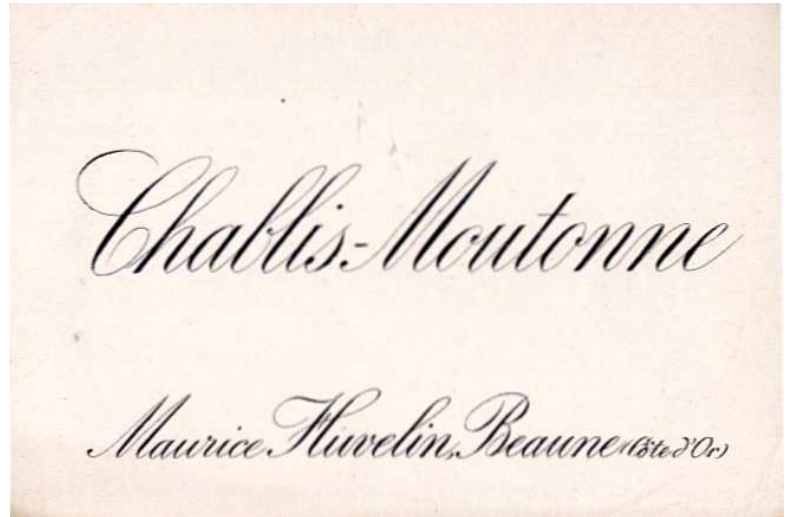 Chablis-Moutonne
Maurice Huvelin, Beaune (Côte d'Or)